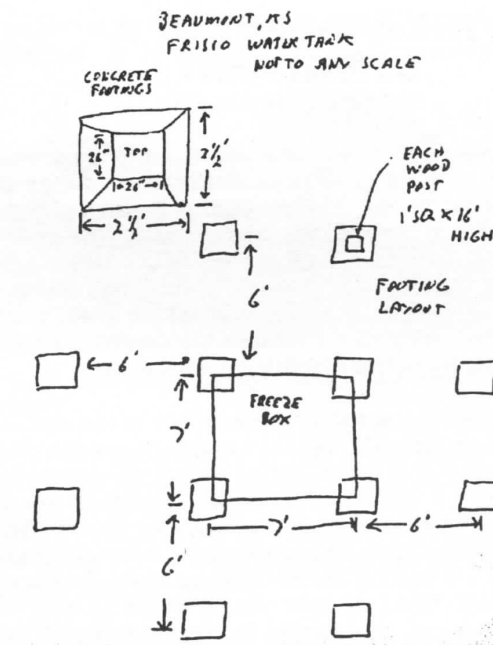 BEAUMONT, KS
FRISCO WATER TANK
NOT TO ANY SCALE
CONCRETE
FOOTINGS
26"
TOP
26"
2½'
2½'
EACH
WOOD
POST
1'SQ X 16'
HIGH
6'
FOOTING
LAYOUT
6'
FREEZE
BOX
7'
7'
6'
6'